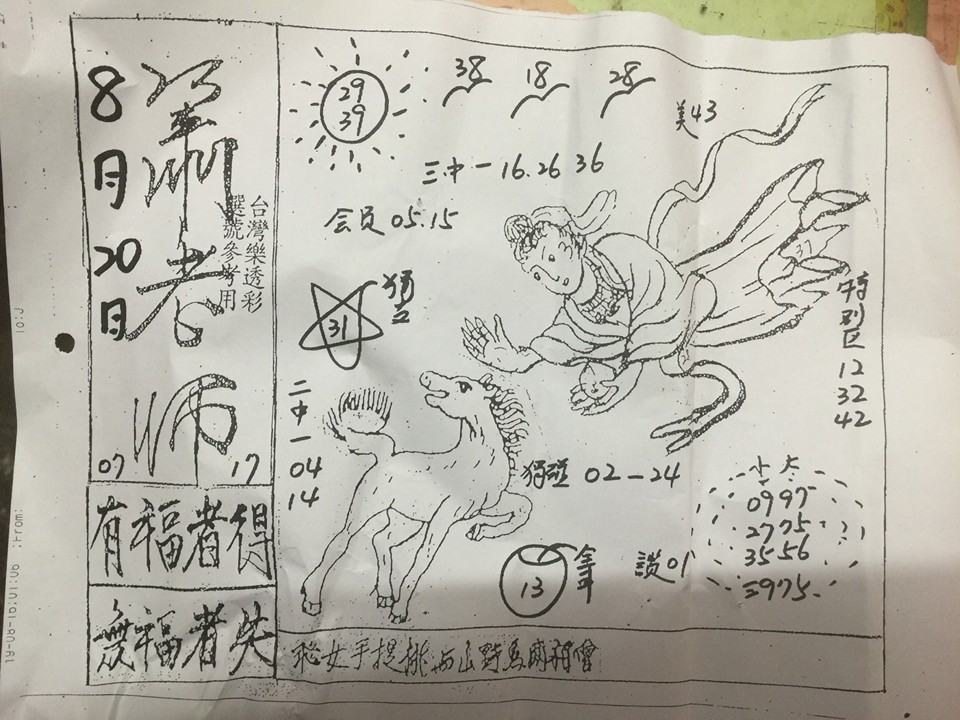 8月20日
蕭老師
台灣樂透彩
選號參考用
07 17
有福者得
無福者失
29
39
38 18 28
美43
三中一16.26 36
会员05.15
31
31
独立
特別区
12
32
42
二中一
04
14
02—24
0997
2775
3556
3975
13
讚01
女手提桃 山野馬
From: